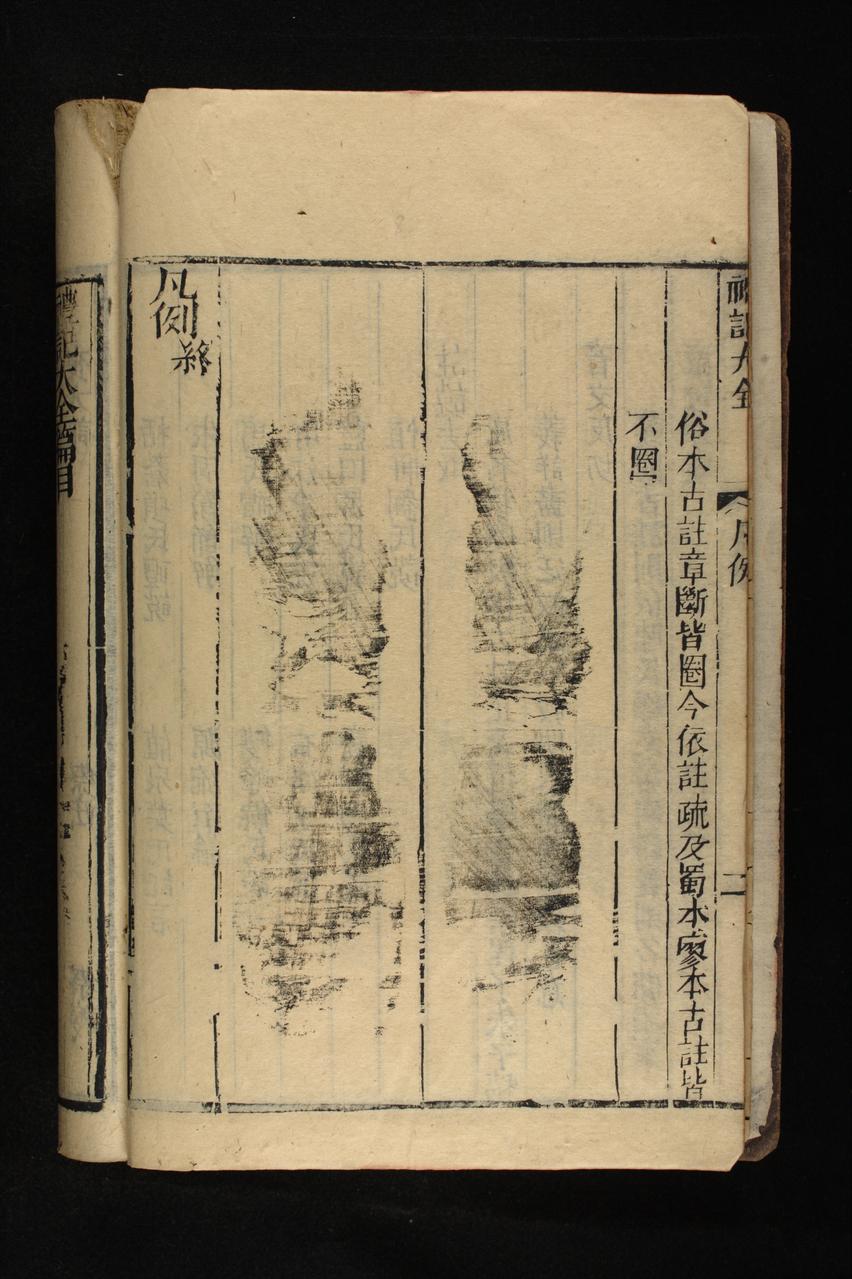 禮記大全
凡例
二
俗本古註章斷皆圈今依註疏及蜀本廖本古註皆
不圈
凡例終
禮記大全篇目